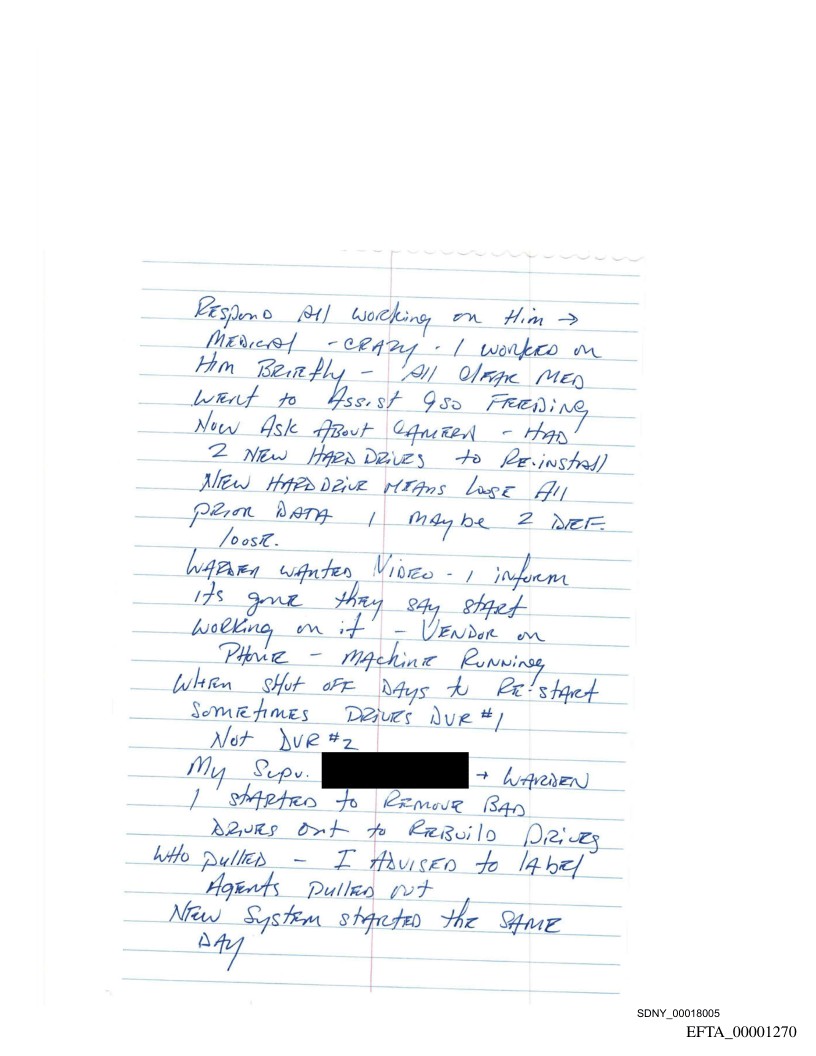 Respond All working on Him →
Medical - CRAZY - I worked on
Him Briefly - All Clear MED
went to Assist 9so Feeding
Now Ask About CAMERA - HAD
2 NEW HARD DRIVES to RE-install
NEW HARD DRIVE MEANS Lose All
PRIOR DATA 1 Maybe 2 DEF.
loose.
WARDEN WANTED VIDEO - I inform
its gone they say start
working on it - VENDOR on
Phone - MAchine Running
When shut off DAYS to RE-start
Sometimes DRIVES DVR #1
Not DVR #2
My Supv. → WARDEN
I started to Remove BAD
Drives out to Rebuild Drives
Who pulled - I ADVISED to label
Agents pulled out
NEW System started the SAME
DAY
SDNY_00018005
EFTA_00001270